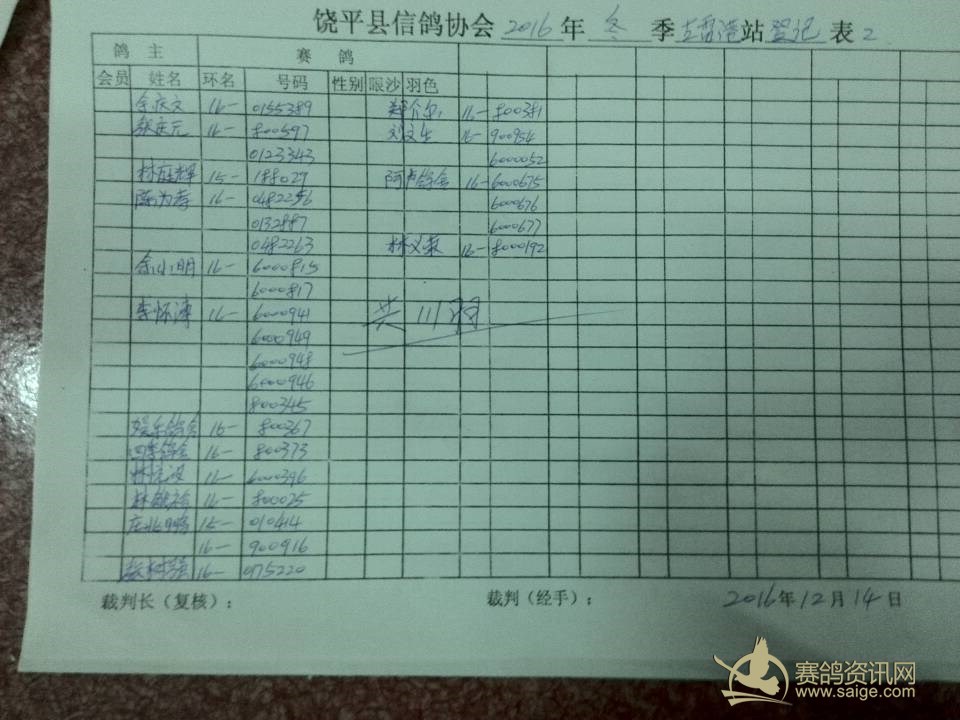 饶平县信鸽协会 2016 年 冬 季 站 登记 表 2
鸽 主 赛 鸽
会员 姓名 环名 号码 性别 眼沙 羽色
余庆文 16- 0155389 16- 800381
张庄元 16- 800597 刘文生 16- 900954
0123343 6000052
15- 188029 16- 600675
陈为春 16- 0482256 600676
0132887 600677
0482263 林义荣 16- 8000192
余小明 16- 6000815
6000817
李怀涛 16- 6000941 共111羽
6000949
6000948
6000946
800345
娱乐鸽舍 16- 800367
四季鸽舍 16- 800373
16- 6000396
16- 800025
15- 010414
16- 900916
16- 075220
裁判长（复核）： 裁判（经手）： 2016年12月14日
赛鸽资讯网
www.saige.com